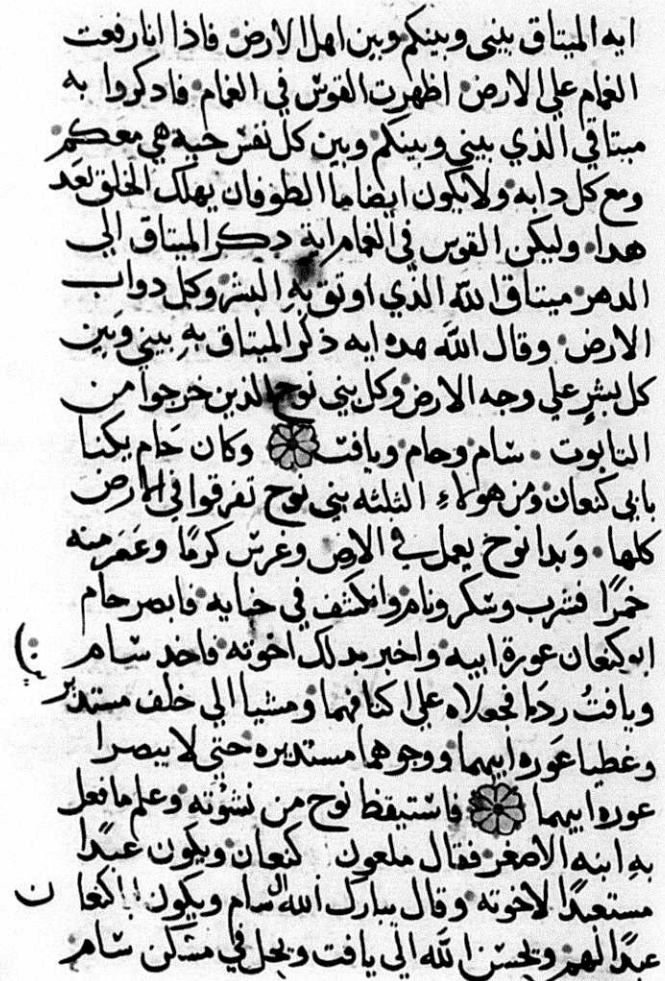 ايه الميتاق بيني وبينكم وبين اهل الارض فاذا انا رفعت
الغمام علي الارض اظهرت القوس في الغمام فادكروا به
ميتاقي الذي بيني وبينكم وبين كل نفس حيه هي معكم
ومع كل دابه ولا يكون ايضا ما الطوفان يهلك الخلق بعد
هدا وليكن القوس في الغمام اية دكر الميتاق الي
الدهر ميتاق الله الذي اوتق به البشر وكل دواب
الارض وقال الله هده ايه ذكر الميتاق به بيني وبين
كل بشر علي وجه الارض وكل بني نوح الذين خرجوا من
التابوت سام وحام ويافت وكان حام يكنا
بابي كنعان ومن هولاء الثلثه بني نوح تفرقوا في الارض
كلها وبدا نوح يعمل في الارض وغرس كرمًا وعصر منه
خمرًا فشرب وسكر ونام وانكشف في خبايه فابصر حام
ابو كنعان عورة ابيه واخبر بدلك اخوته فاخد سام
ويافت ردا فجعلاه علي اكتافهما ومشيا الي خلف مستدير
وغطيا عوره ابيهما ووجوههما مستديره حتي لا يبصرا
عوره ابيهما فاستيقظ نوح من نشوته وعلم ما فعل
به ابنه الاصغر فقال ملعون كنعان ويكون عبدًا
مستعبدًا لاخوته وقال يبارك الله سام ويكون كنعان
عبدًا لهم ويحسن الله الي يافت ويحل في مسكن سام